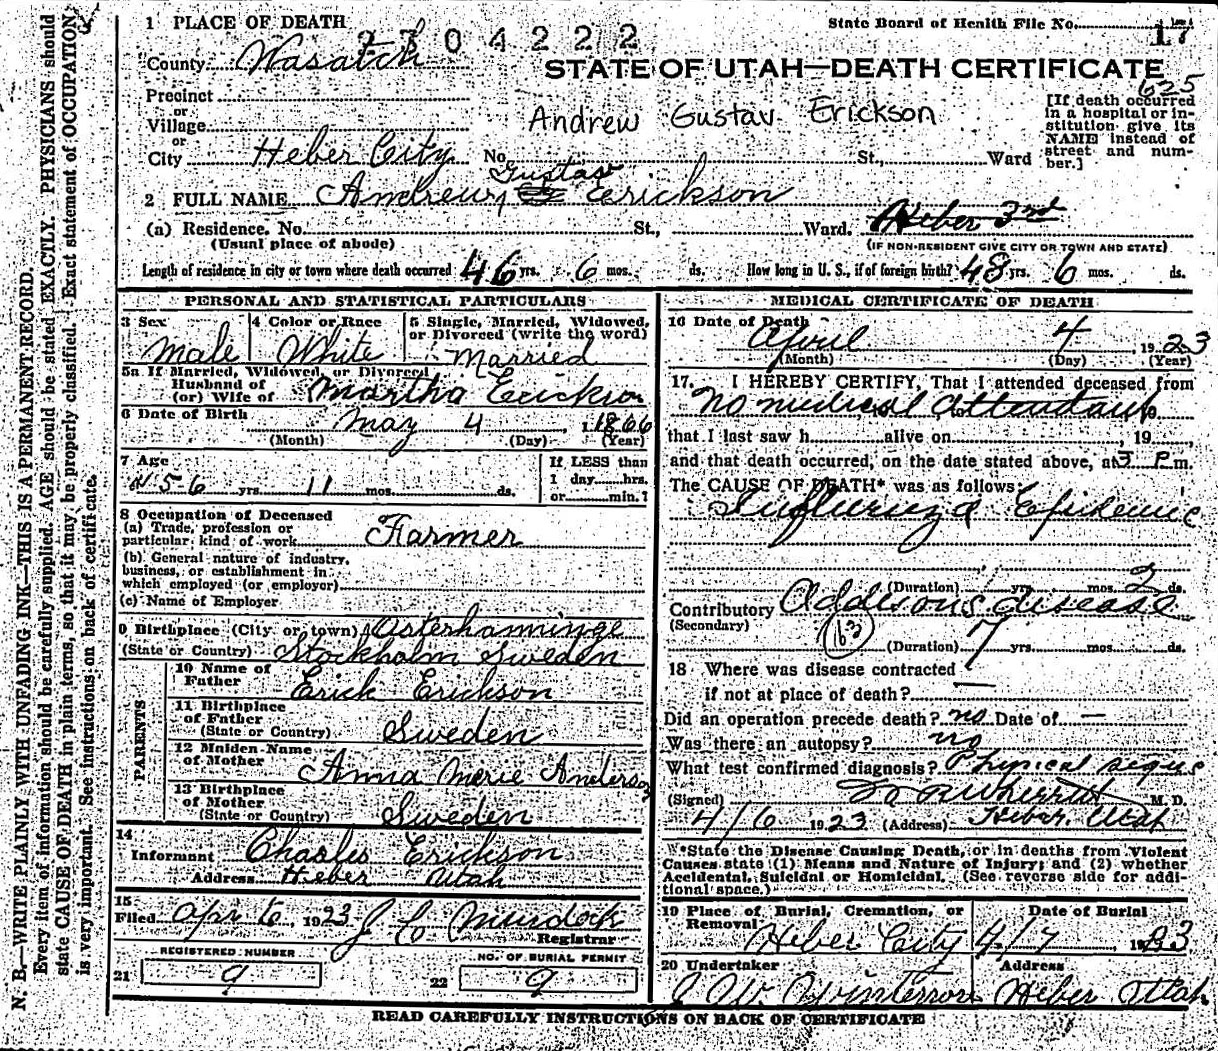 1 PLACE OF DEATH
State Board of Health File No. 17
2304222
County Wasatch
STATE OF UTAH—DEATH CERTIFICATE
625
Precinct
or
Village
or
City Heber City No. St., Ward
Andrew Gustav Erickson
[If death occurred
in a hospital or in-
stitution give its
NAME instead of
street and num-
ber.]
Gustav
2 FULL NAME Andrew Erickson
(a) Residence. No. St., Ward. Heber 3rd
(Usual place of abode)
(IF NON-RESIDENT GIVE CITY OR TOWN AND STATE)
Length of residence in city or town where death occurred 46 yrs. 6 mos. ds. How long in U. S., if of foreign birth? 48 yrs. 6 mos. ds.
PERSONAL AND STATISTICAL PARTICULARS
3 Sex
Male
4 Color or Race
White
5 Single, Married, Widowed,
or Divorced (write the word)
Married
5a If Married, Widowed, or Divorced
Husband of
(or) Wife of Martha Erickson
6 Date of Birth May 4 1866
(Month) (Day) (Year)
7 Age
56 yrs. 11 mos. ds.
If LESS than
1 day hrs.
or min.?
8 Occupation of Deceased
(a) Trade, profession or
particular kind of work Farmer
(b) General nature of industry,
business, or establishment in
which employed (or employer)
(c) Name of Employer
9 Birthplace (City or town) Osterhanninge
(State or Country) Stockholm Sweden
PARENTS
10 Name of
Father Erick Erickson
11 Birthplace
of Father
(State or Country) Sweden
12 Maiden Name
of Mother Anna Marie Anderson
13 Birthplace
of Mother
(State or Country) Sweden
14
Informant Charles Erickson
Address Heber Utah
15
Filed Apr 6 1923 J C Murdock
Registrar
REGISTERED NUMBER
21 9
NO. OF BURIAL PERMIT
22 9
MEDICAL CERTIFICATE OF DEATH
16 Date of Death
April 4 1923
(Month) (Day) (Year)
17. I HEREBY CERTIFY, That I attended deceased from
No medical attendant
that I last saw h alive on , 19
and that death occurred, on the date stated above, at 3 P m.
The CAUSE OF DEATH* was as follows:
Influenza Epidemic
(Duration) yrs. mos. 2 ds.
Contributory Addisons disease
(Secondary)
63
(Duration) 7 yrs. mos. ds.
18 Where was disease contracted
if not at place of death?
Did an operation precede death? no Date of —
Was there an autopsy? no
What test confirmed diagnosis? Physical signs
(Signed) M. D.
4/6 1923 (Address) Heber, Utah
*State the Disease Causing Death, or in deaths from Violent
Causes state (1) Means and Nature of Injury; and (2) whether
Accidental, Suicidal or Homicidal. (See reverse side for addi-
tional space.)
19 Place of Burial, Cremation, or
Removal
Heber City
Date of Burial
4/7 1923
20 Undertaker
Address
Heber Utah
READ CAREFULLY INSTRUCTIONS ON BACK OF CERTIFICATE
N. B.—WRITE PLAINLY WITH UNFADING INK—THIS IS A PERMANENT RECORD.
Every item of information should be carefully supplied. AGE should be stated EXACTLY. PHYSICIANS should
state CAUSE OF DEATH in plain terms, so that it may be properly classified. Exact statement of OCCUPATION
is very important. See instructions on back of certificate.